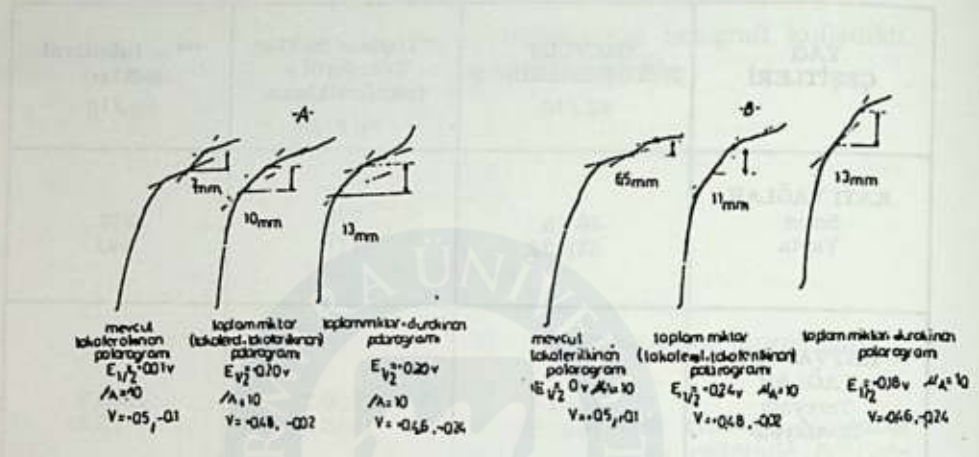 -A-
7mm
10mm
13mm
mevcut
tokoferolkinon
polarogramı
E1/2=+0.01v
μA=10
V=+0.5, -0.1
toplam miktar
(tokoferol+tokoferilkinon)
polarogramı
E1/2=+0.20v
μA=10
V=+0.48, -0.02
toplam miktar+durokinon
polarogramı
E1/2=+0.20v
μA=10
V=+0.46, -0.24
-B-
6.5mm
11mm
13mm
mevcut
tokoferilkinon
polarogramı
E1/2=0v μA=10
V=+0.5, -0.1
toplam miktar
(tokoferol+tokoferilkinon)
polarogramı
E1/2=+0.24v μA=10
V=+0.48, -0.02
toplam miktar+durokinon
polarogramı
E1/2=+0.18v μA=10
V=+0.46, -0.24